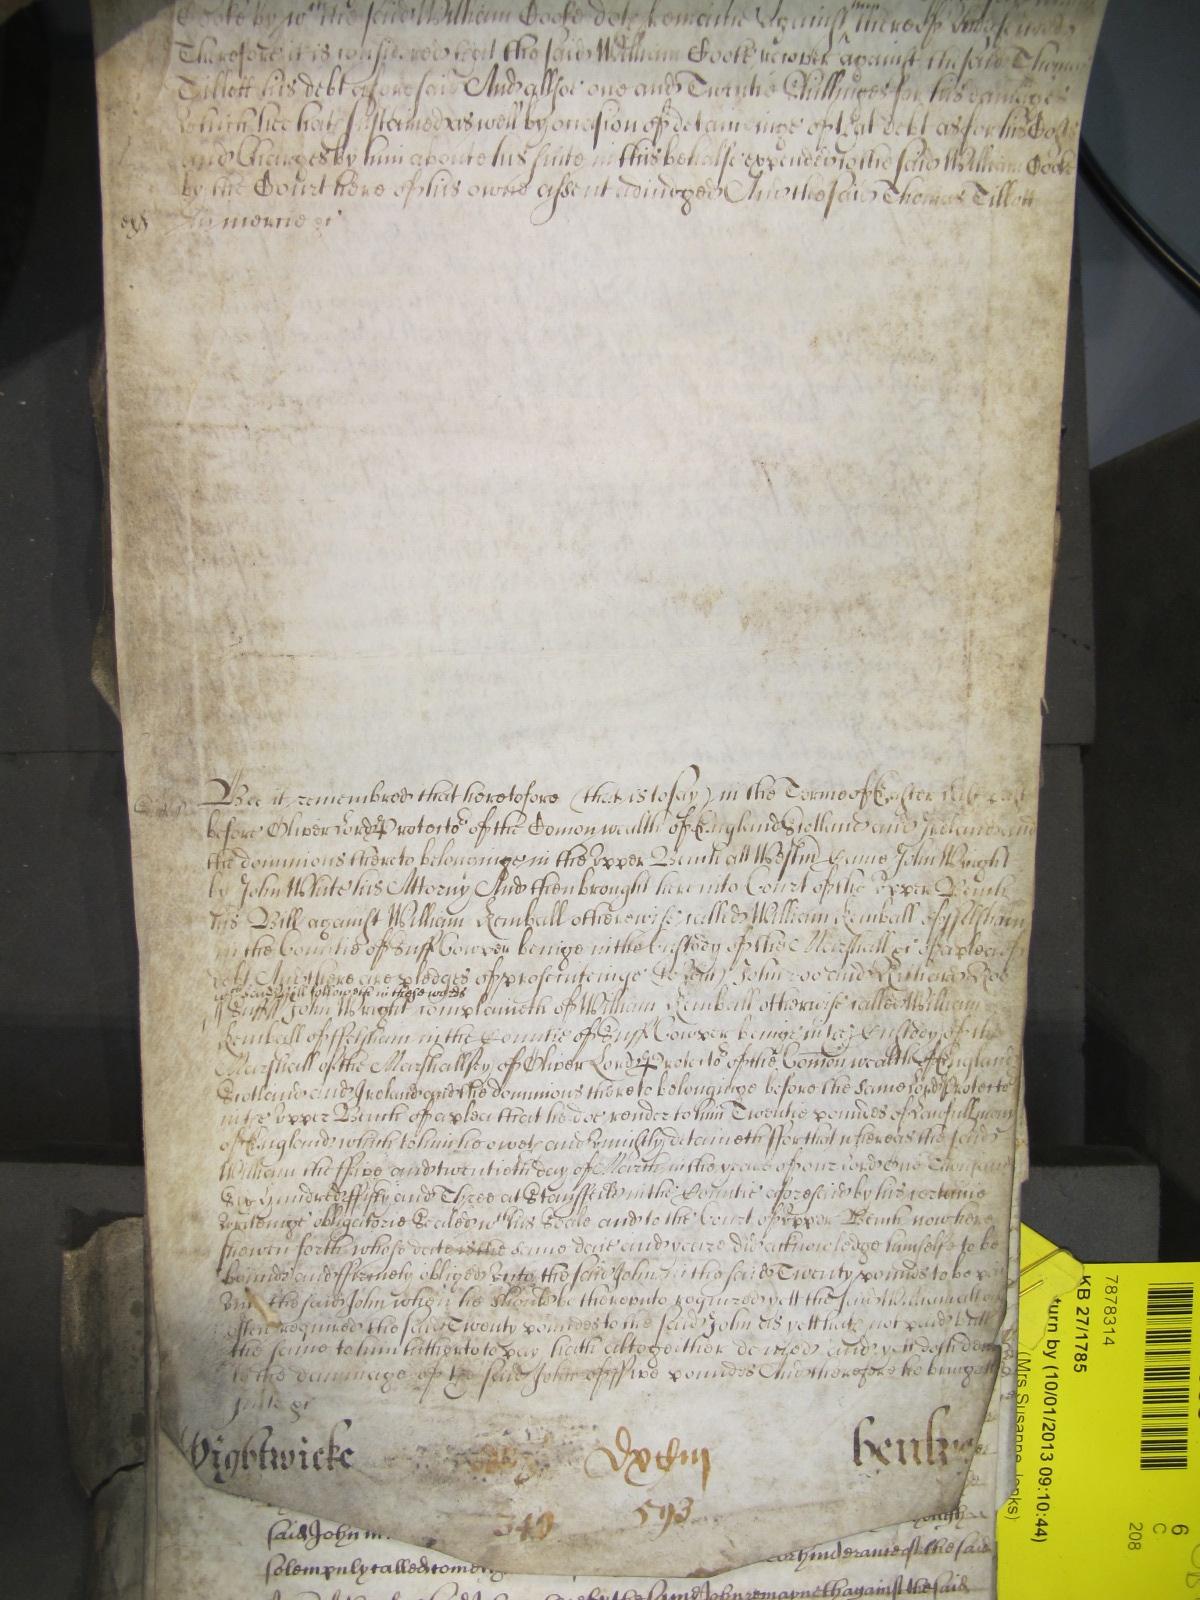 Cooke by wch the said William Cooke doth remaine against thereof
Therefore it is considered that the said William Cooke recover against the said Thomas
Tillott his debt aforesaid And allsoe one and Twentie Shillinges for his damages
which hee hath sustained as well by occasion of detaineinge of that debt as for his Costs
and Charges by him aboute his suite in this behalfe expended to the said William Cooke
by the Court here of his owne assent adiudged And the said Thomas Tillott
in mercie &c
Bee it remembred that heretofore (that is to say) in the Terme of Easter last past
before Oliver Lord Protector of the Comonwealth of England Scotland and Ireland and
the dominions thereto belonginge in the upper Bench att Westm Came John Wright
by John White his Attorny And then brought here into Court of the upper Bench
his Bill against William Kemball otherwise called William Kemball of Felsham
in the Countie of Suff Cowper beinge in the Custody of the Marshall &c of a plea of
debt And there are pledges of prosecuteinge to say John Doe and Richard Roe
wch said Bill followeth in these words
Suff ss John Wright complaineth of William Kemball otherwise called William
Kemball of Felsham in the Countie of Suff Cowper beinge in the Custody of the
Marshall of the Marshallsey of Oliver Lord Protector of the Comon wealth of England
Scotland and Ireland and the dominions thereto belonginge before the same Lord Protector
in the upper Bench of a plea that he doe render to him Twentie poundes of lawfull mony
of England which to him he oweth and uniustly detaineth ffor that whereas the said
William the ffive and twentieth day of March in the yeare of our Lord One Thousand
Six Hundred ffifty and Three at Stansfeild in the Countie aforesaid by his certaine
writeinge obligatorie Sealed wth his Seale and to the Court of upper Bench now here
shewen forth whose date is the same daie and yeare did acknowledge himselfe to be
bound and ffirmely obliged unto the said John in the said Twenty pounds to be paid
unto the said John when he should be thereunto required yett the said William allthough
often required the said Twenty poundes to the said John as yett hath not paid but
the same to him hitherto to pay hath altogether denied and yett doth deny
to the dammage of the said John of ffive poundes And therefore he bringeth
suite &c
Wightwicke
Dxciii
henley
349 593
said John
solempnly called come
or hinderance of the said
by the same John remayneth against the said
KB 27/1785
7878314
turn by (10/01/2013 09:10:44)
(Mrs Susanne Jenks)
6
C
208